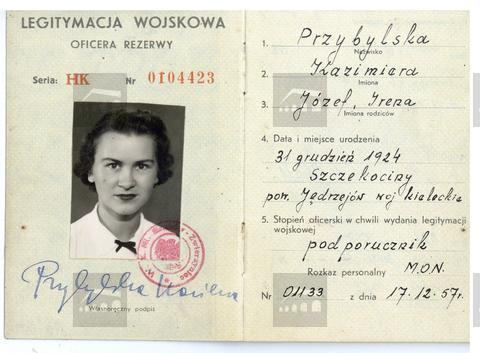 LEGITYMACJA WOJSKOWA
OFICERA REZERWY
Seria: HK Nr 0104423
Własnoręczny podpis
1. Przybylska
Nazwisko
2. Kazimiera
Imiona
3. Józef, Irena
Imiona rodziców
4. Data i miejsce urodzenia
31 grudzień 1924
Szczekociny
pow. Jędrzejów woj kieleckie
5. Stopień oficerski w chwili wydania legitymacji
wojskowej
podporucznik
Rozkaz personalny M.O.N.
Nr 01133 z dnia 17.12.57r.